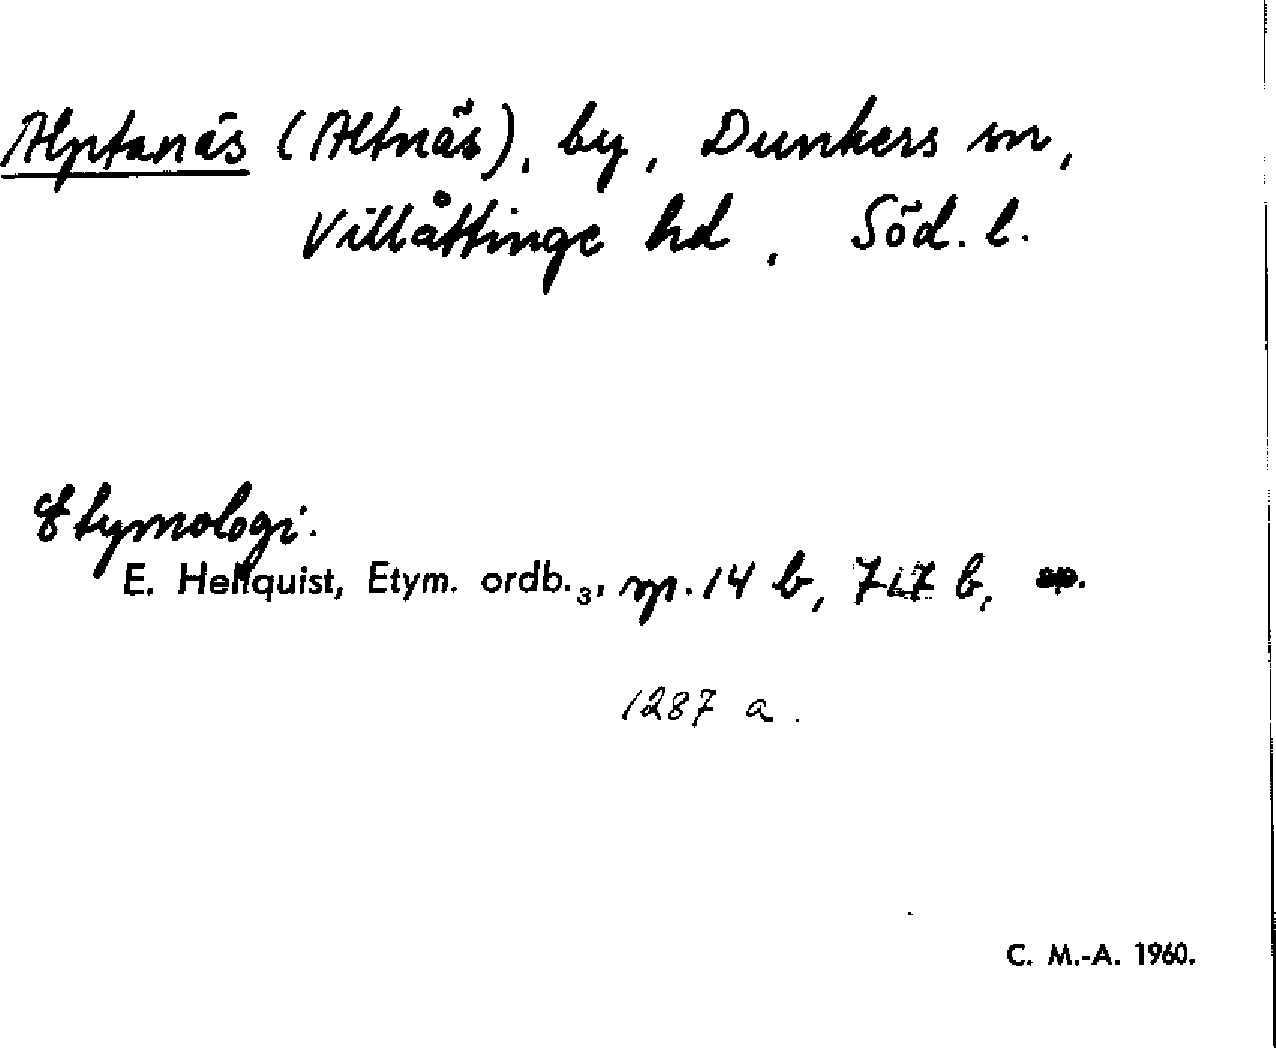 Alptanäs (Altnäs), by, Dunkers sn,
Villåttinge hd, Söd. l.
Etymologi.
E. Hellquist, Etym. ordb.3, sp. 14 b, 717 b, sp.
1287 a.
C. M.-A. 1960.